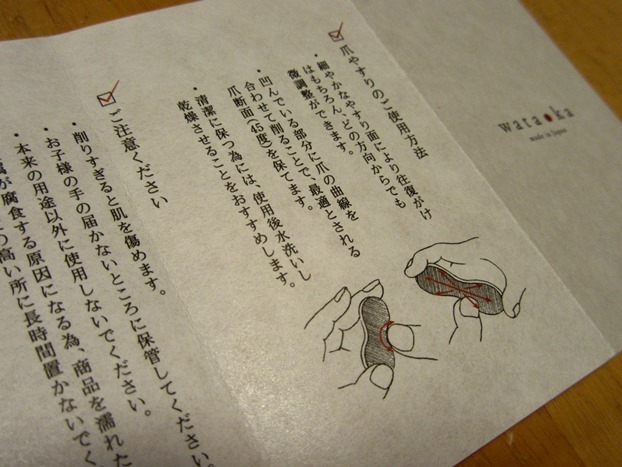 waraoka
made in Japan
爪やすりのご使用方法
・細やかなやすり面により往復がけ
はもちろん、どの方向からでも
微調整ができます。
・凹んでいる部分に爪の曲線を
合わせて削ることで、最適とされる
爪断面(45度)を保てます。
・清潔に保つ為には、使用後水洗いし
乾燥させることをおすすめします。
ご注意ください
・削りすぎると肌を傷めます。
・お子様の手の届かないところに保管してください。
・本来の用途以外に使用しないでください。
が腐食する原因になる為、商品を濡れた
高い所に長時間置かないでく